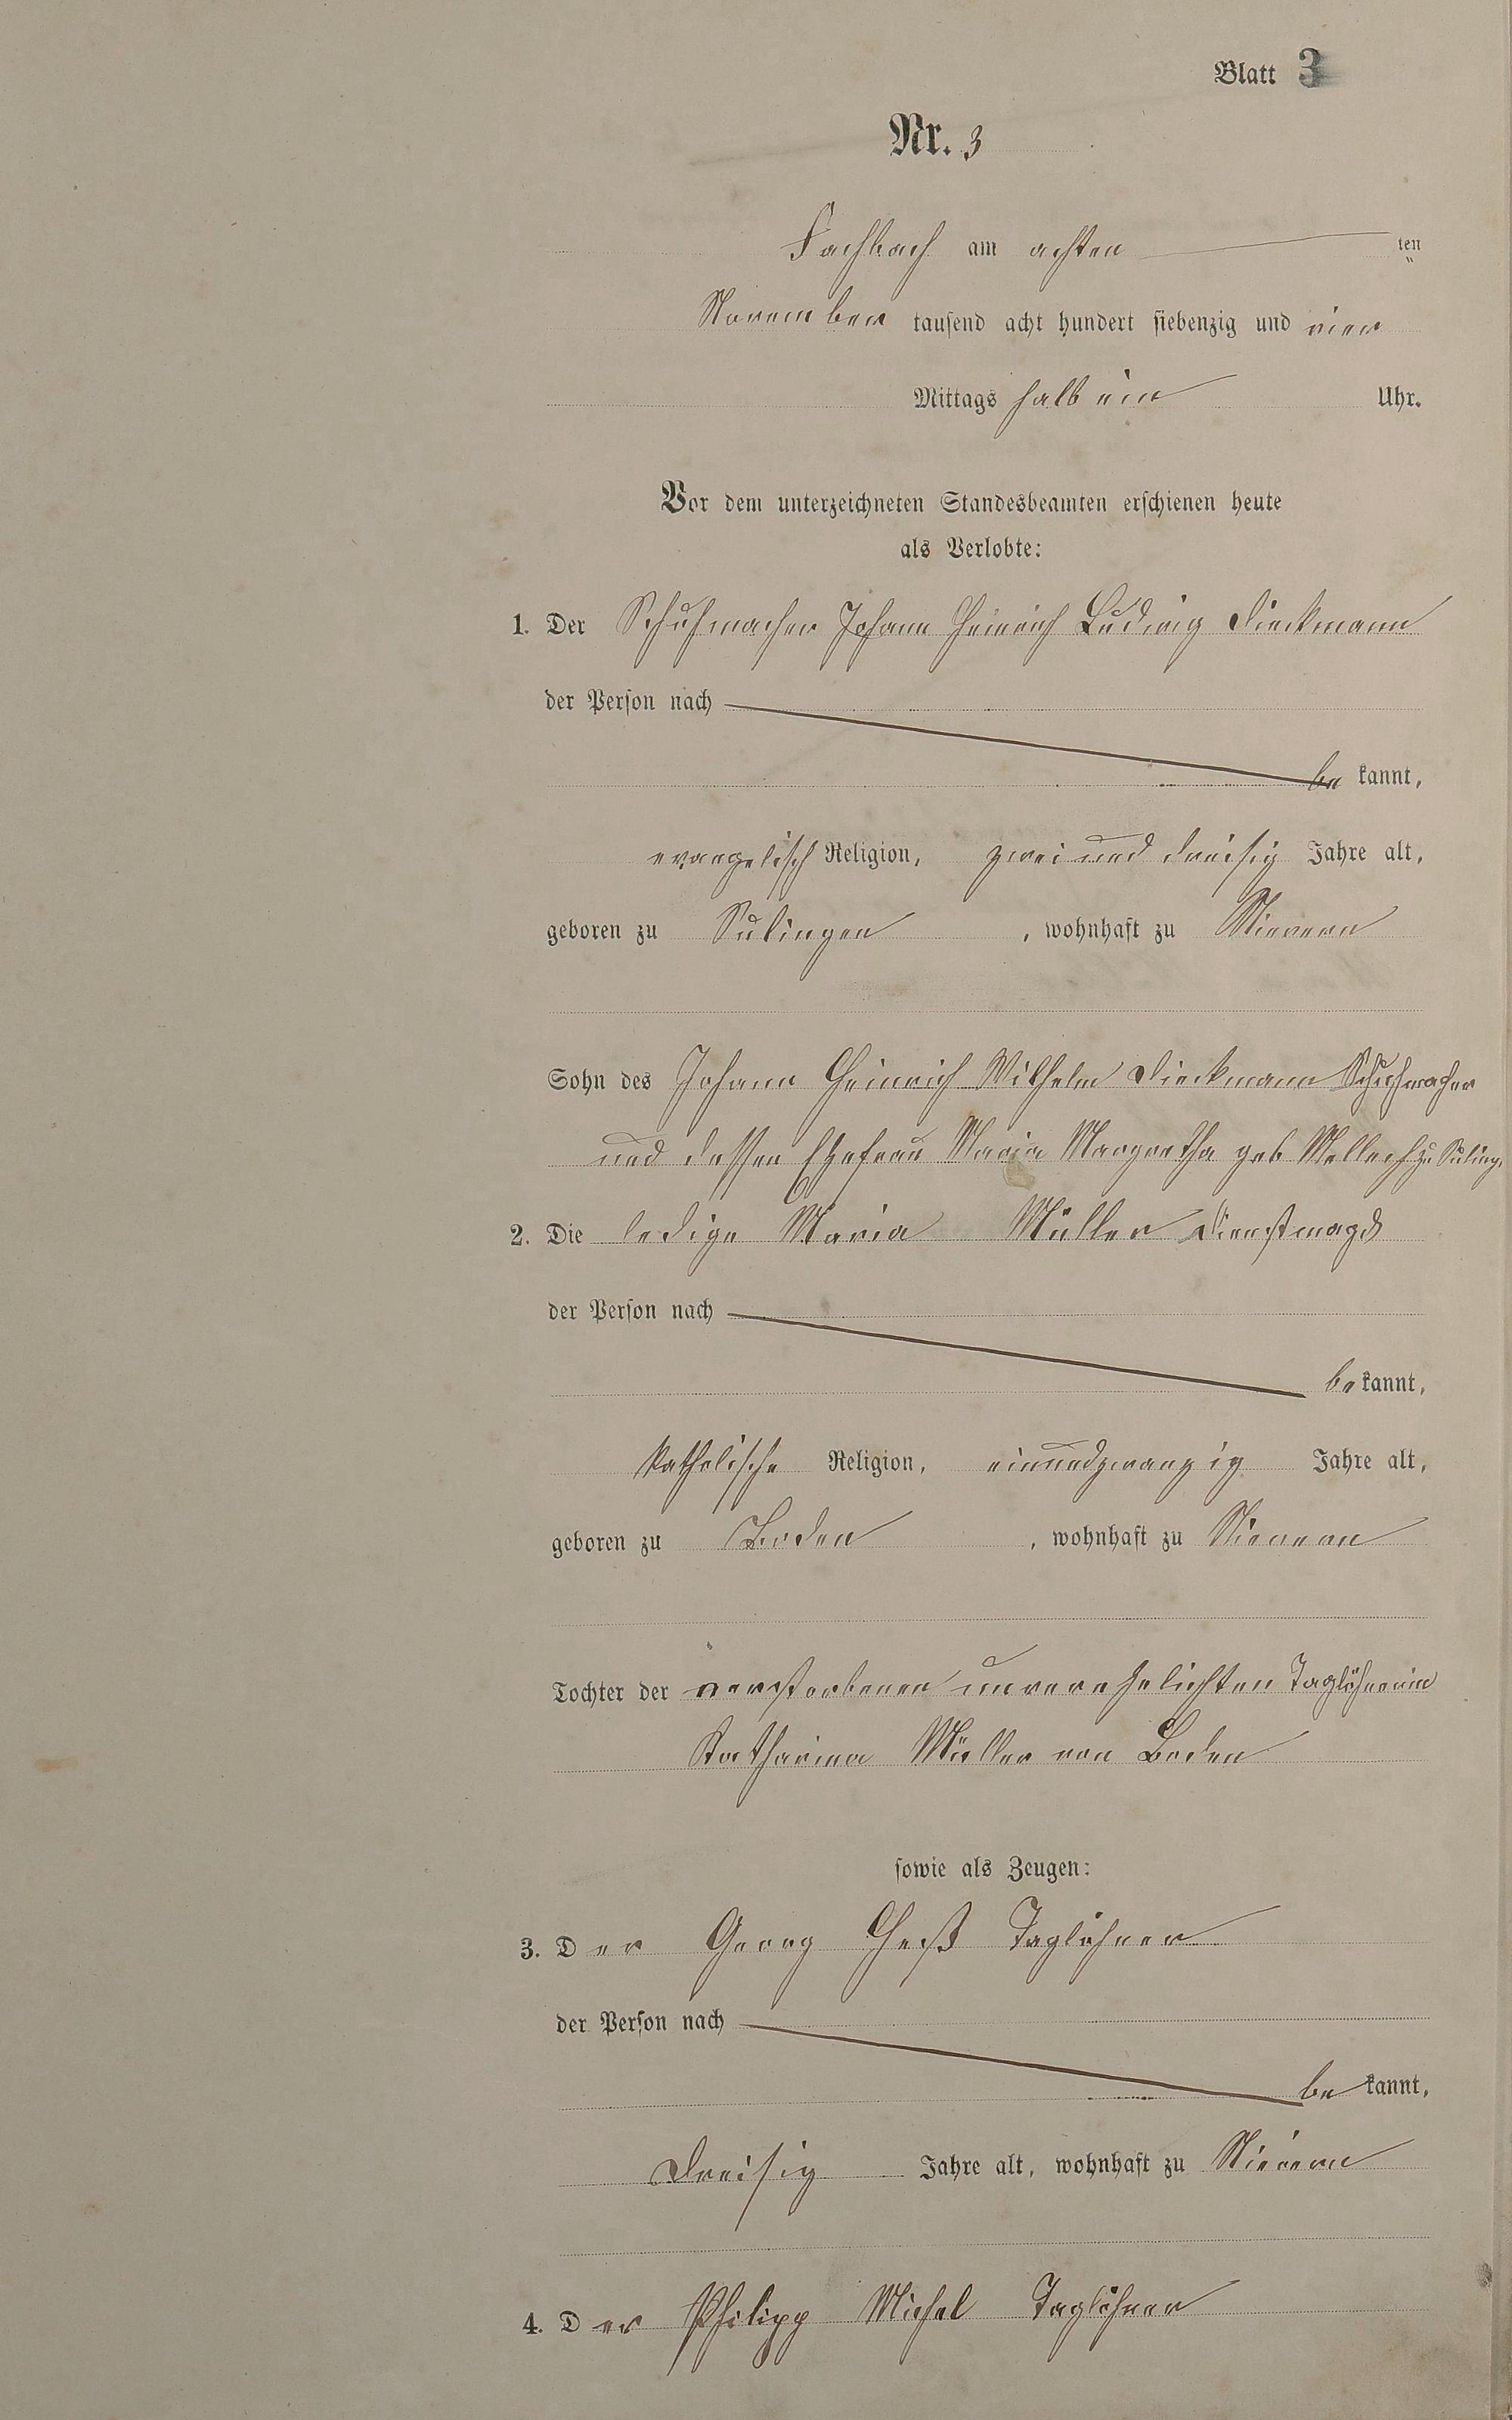 Blatt 3
Nr. 3
Fachbach am achten ten
November tausend acht hundert siebenzig und vier
Mittags halb ein Uhr.
Vor dem unterzeichneten Standesbeamten erschienen heute
als Verlobte:
1. Der Schuhmacher Johann Heinrich Ludwig Dieckmann
der Person nach
be kannt,
evangelisch Religion, zwei und dreisig Jahre alt,
geboren zu Sulingen, wohnhaft zu Nievern
Sohn des Johann Heinrich Wilhelm Dieckmann Schuhmacher
und dessen Ehefrau Maria Margretha geb zu Suling.
2. Die ledige Maria Müller Dienstmagd
der Person nach
be kannt,
katholische Religion, einundzwanzig Jahre alt,
geboren zu Boden, wohnhaft zu Nievern
Tochter der verstorbenen unverehelichten Taglöhnerin
Katharina Müller von Boden
sowie als Zeugen:
3. Der Georg Heß Taglöhner
der Person nach
be kannt,
Dreisig Jahre alt, wohnhaft zu Nievern
4. Der Philipp Michel Taglöhner